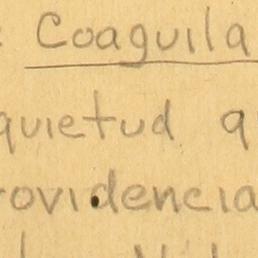 : Coaguila
quietud q
rovidencia